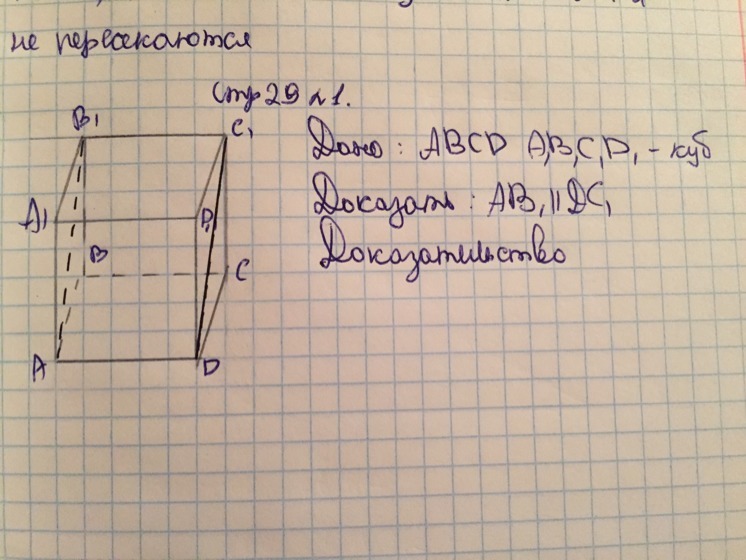 не пересекаются
Стр 29 №1.
B1
C1
Дано: ABCD A1B1C1D1 - куб
Доказать: AB1 || DC1
A1
D1
B
Доказательство
C
A
D